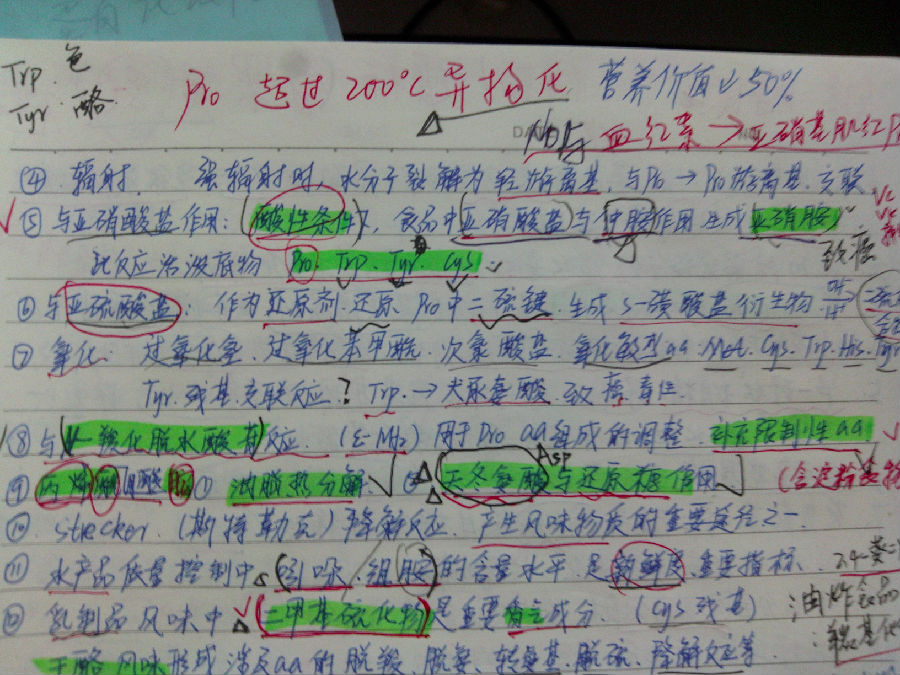 Trp. 色
Tyr. 酪
Pro 超过 200℃ 异构化 营养价值↓50%
血红素 → 亚硝基肌红
④ 辐射. 强辐射时, 水分子裂解为羟游离基, 与Pro → Pro游离基. 交联
⑤ 与亚硝酸盐作用: (酸性条件), 食品中亚硝酸盐与仲胺作用 生成 亚硝胺
致癌
Pro. Trp. Tyr. Cys
⑥ 与亚硫酸盐: 作为还原剂. 还原 Pro中二硫键. 生成 S-磺酸盐衍生物
⑦ 氧化: 过氧化氢. 过氧化苯甲酰. 次氯酸盐. 氧化敏感aa. Met. Cys. Trp. His. Tyr
Tyr. 残基. 交联反应? Trp. → 犬尿氨酸. 致癌毒性
⑧ 与 (N-羧基脱水酸酐) 反应. (ε-NH2) 用于Pro aa组成的调整. 补充限制性aa
⑨ 丙烯酰胺 ① 油脂热分解. ② 天冬氨酸与还原糖作用
Asp
⑩ Strecker. (斯特勒克) 降解反应. 产生风味物质的重要途径之一.
⑪ 水产品质量控制中. (吲哚. 组胺) 的含量水平 是 新鲜度 重要指标.
⑫ 乳制品风味中 (二甲基硫化物) 是重要 成分. (Cys 残基)
油炸食品
干酪 风味形成 涉及aa 的 脱羧、脱氨、转氨基、脱硫、降解反应等